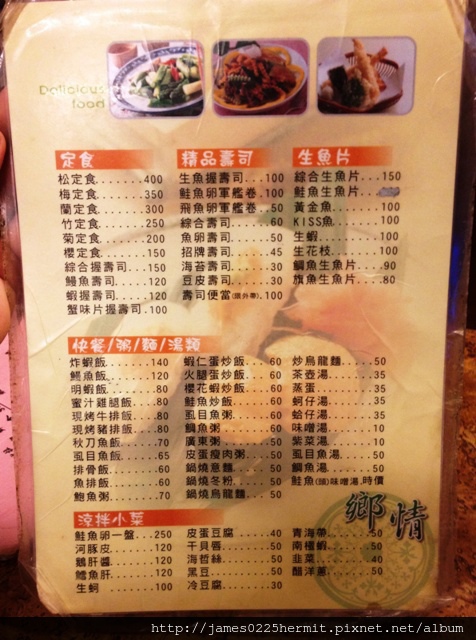 Delicious
food
定食
松定食........400
梅定食........350
蘭定食........300
竹定食........250
菊定食........200
櫻定食........150
綜合握壽司...150
鰻魚壽司.....120
蝦握壽司.....120
蟹味片握壽司.100
精品壽司
生魚握壽司...100
鮭魚卵軍艦卷.100
飛魚卵軍艦卷..50
綜合壽司......60
魚卵壽司......50
招牌壽司......45
海苔壽司......30
豆皮壽司......30
壽司便當(限外帶).100
生魚片
綜合生魚片...150
鮭魚生魚片
黃金魚.......100
KISS魚.......100
生蝦.........100
生花枝.......100
鯛魚生魚片....90
旗魚生魚片....80
快餐/粥/麵/湯類
炸蝦飯.......140
鰻魚飯.......120
明蝦飯........80
蜜汁雞腿飯....80
現烤牛排飯....80
現烤豬排飯....80
秋刀魚飯......70
虱目魚飯......65
排骨飯........60
魚排飯........60
鮑魚粥........70
蝦仁蛋炒飯....60
火腿蛋炒飯....60
櫻花蝦炒飯....60
鮭魚炒飯......60
虱目魚粥......60
鯛魚粥........60
廣東粥........50
皮蛋瘦肉粥....50
鍋燒意麵......50
鍋燒冬粉......50
鍋燒烏龍麵....50
炒烏龍麵......50
茶壺湯........35
蒸蛋..........35
蚵仔湯........35
蛤仔湯........35
味噌湯........10
紫菜湯........10
虱目魚湯......50
鯛魚湯........50
鮭魚(頭)味噌湯.時價
鄉情
涼拌小菜
鮭魚卵一盤...250
河豚皮.......120
鵝肝醬.......120
鱈魚肝.......120
生蚵.........100
皮蛋豆腐......40
干貝唇........50
海哲絲........50
黑豆..........50
冷豆腐........30
青海帶........50
南極蝦........50
韭菜..........40
醋洋蔥........50
http://james0225hermit.pixnet.net/album